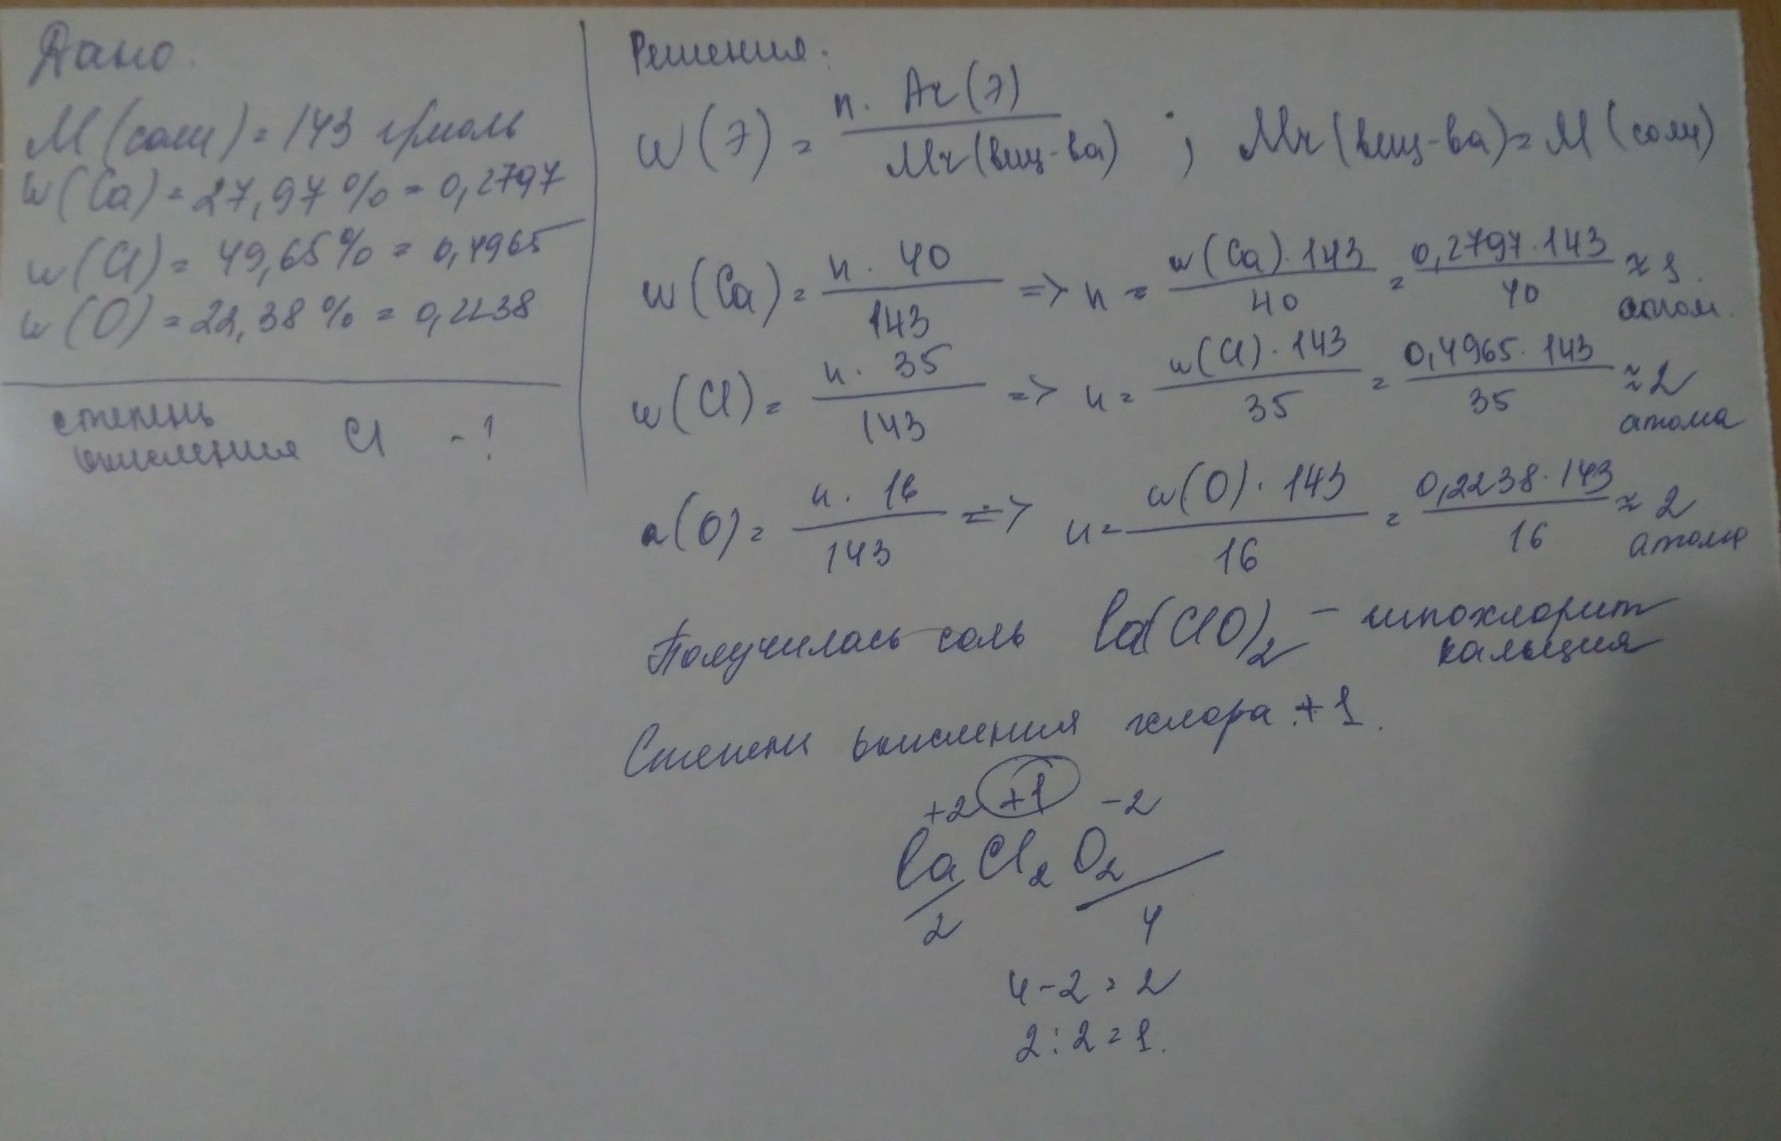 Дано.
M(соли) = 143 г/моль
w(Ca) = 27,97% = 0,2797
w(Cl) = 49,65% = 0,4965
w(O) = 22,38% = 0,2238
степень
окисления Cl - ?
Решения:
w(Э) = n · Ar(Э) / Mr(вещ-ва) ; Mr(вещ-ва) = M(соли)
w(Ca) = n · 40 / 143 => n = w(Ca) · 143 / 40 = 0,2797 · 143 / 40 ≈ 1 атом.
w(Cl) = n · 35 / 143 => n = w(Cl) · 143 / 35 = 0,4965 · 143 / 35 ≈ 2 атома
w(O) = n · 16 / 143 => n = w(O) · 143 / 16 = 0,2238 · 143 / 16 ≈ 2 атома
Получилась соль Ca(ClO)2 – гипохлорит
кальция
Степени окисления хлора +1.
+2 +1 -2
CaCl2O2
2 4
4 - 2 = 2
2 : 2 = 1.